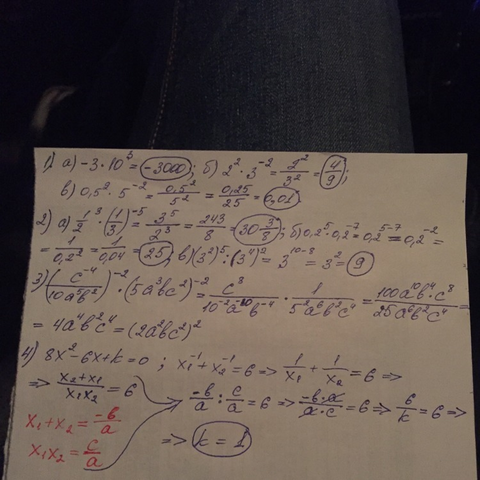 1) а) -3·10³ = -3000; б) 2²·3⁻² = 2²/3² = 4/9;
в) 0,5²·5⁻² = 0,5²/5² = 0,25/25 = 0,01.
2) а) 1/2³·(1/3)⁻⁵ = 3⁵/2³ = 243/8 = 30 3/8; б) 0,2⁵·0,2⁻⁷ = 0,2⁵⁻⁷ = 0,2⁻² =
= 1/0,2² = 1/0,04 = 25; в) (3²)⁵:(3⁴)² = 3¹⁰⁻⁸ = 3² = 9
3) (c⁻⁴/10a⁵b²)⁻²·(5a³bc²)⁻² = c⁸/10⁻²a⁻¹⁰b⁻⁴ · 1/5²a⁶b²c⁴ = 100a¹⁰b⁴·c⁸/25a⁶b²c⁴ =
= 4a⁴b²c⁴ = (2a²bc²)²
4) 8x²-6x+k=0; x₁⁻¹+x₂⁻¹=6 => 1/x₁ + 1/x₂ = 6 =>
=> x₂+x₁/x₁x₂ = 6
-b/a : c/a = 6 => -b·a/a·c = 6 => 6/k = 6 =>
x₁+x₂ = -b/a
x₁x₂ = c/a
=> k = 1